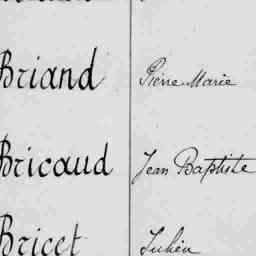 Briand Pierre Marie
Bricaud Jean Baptiste
Bricet Julien